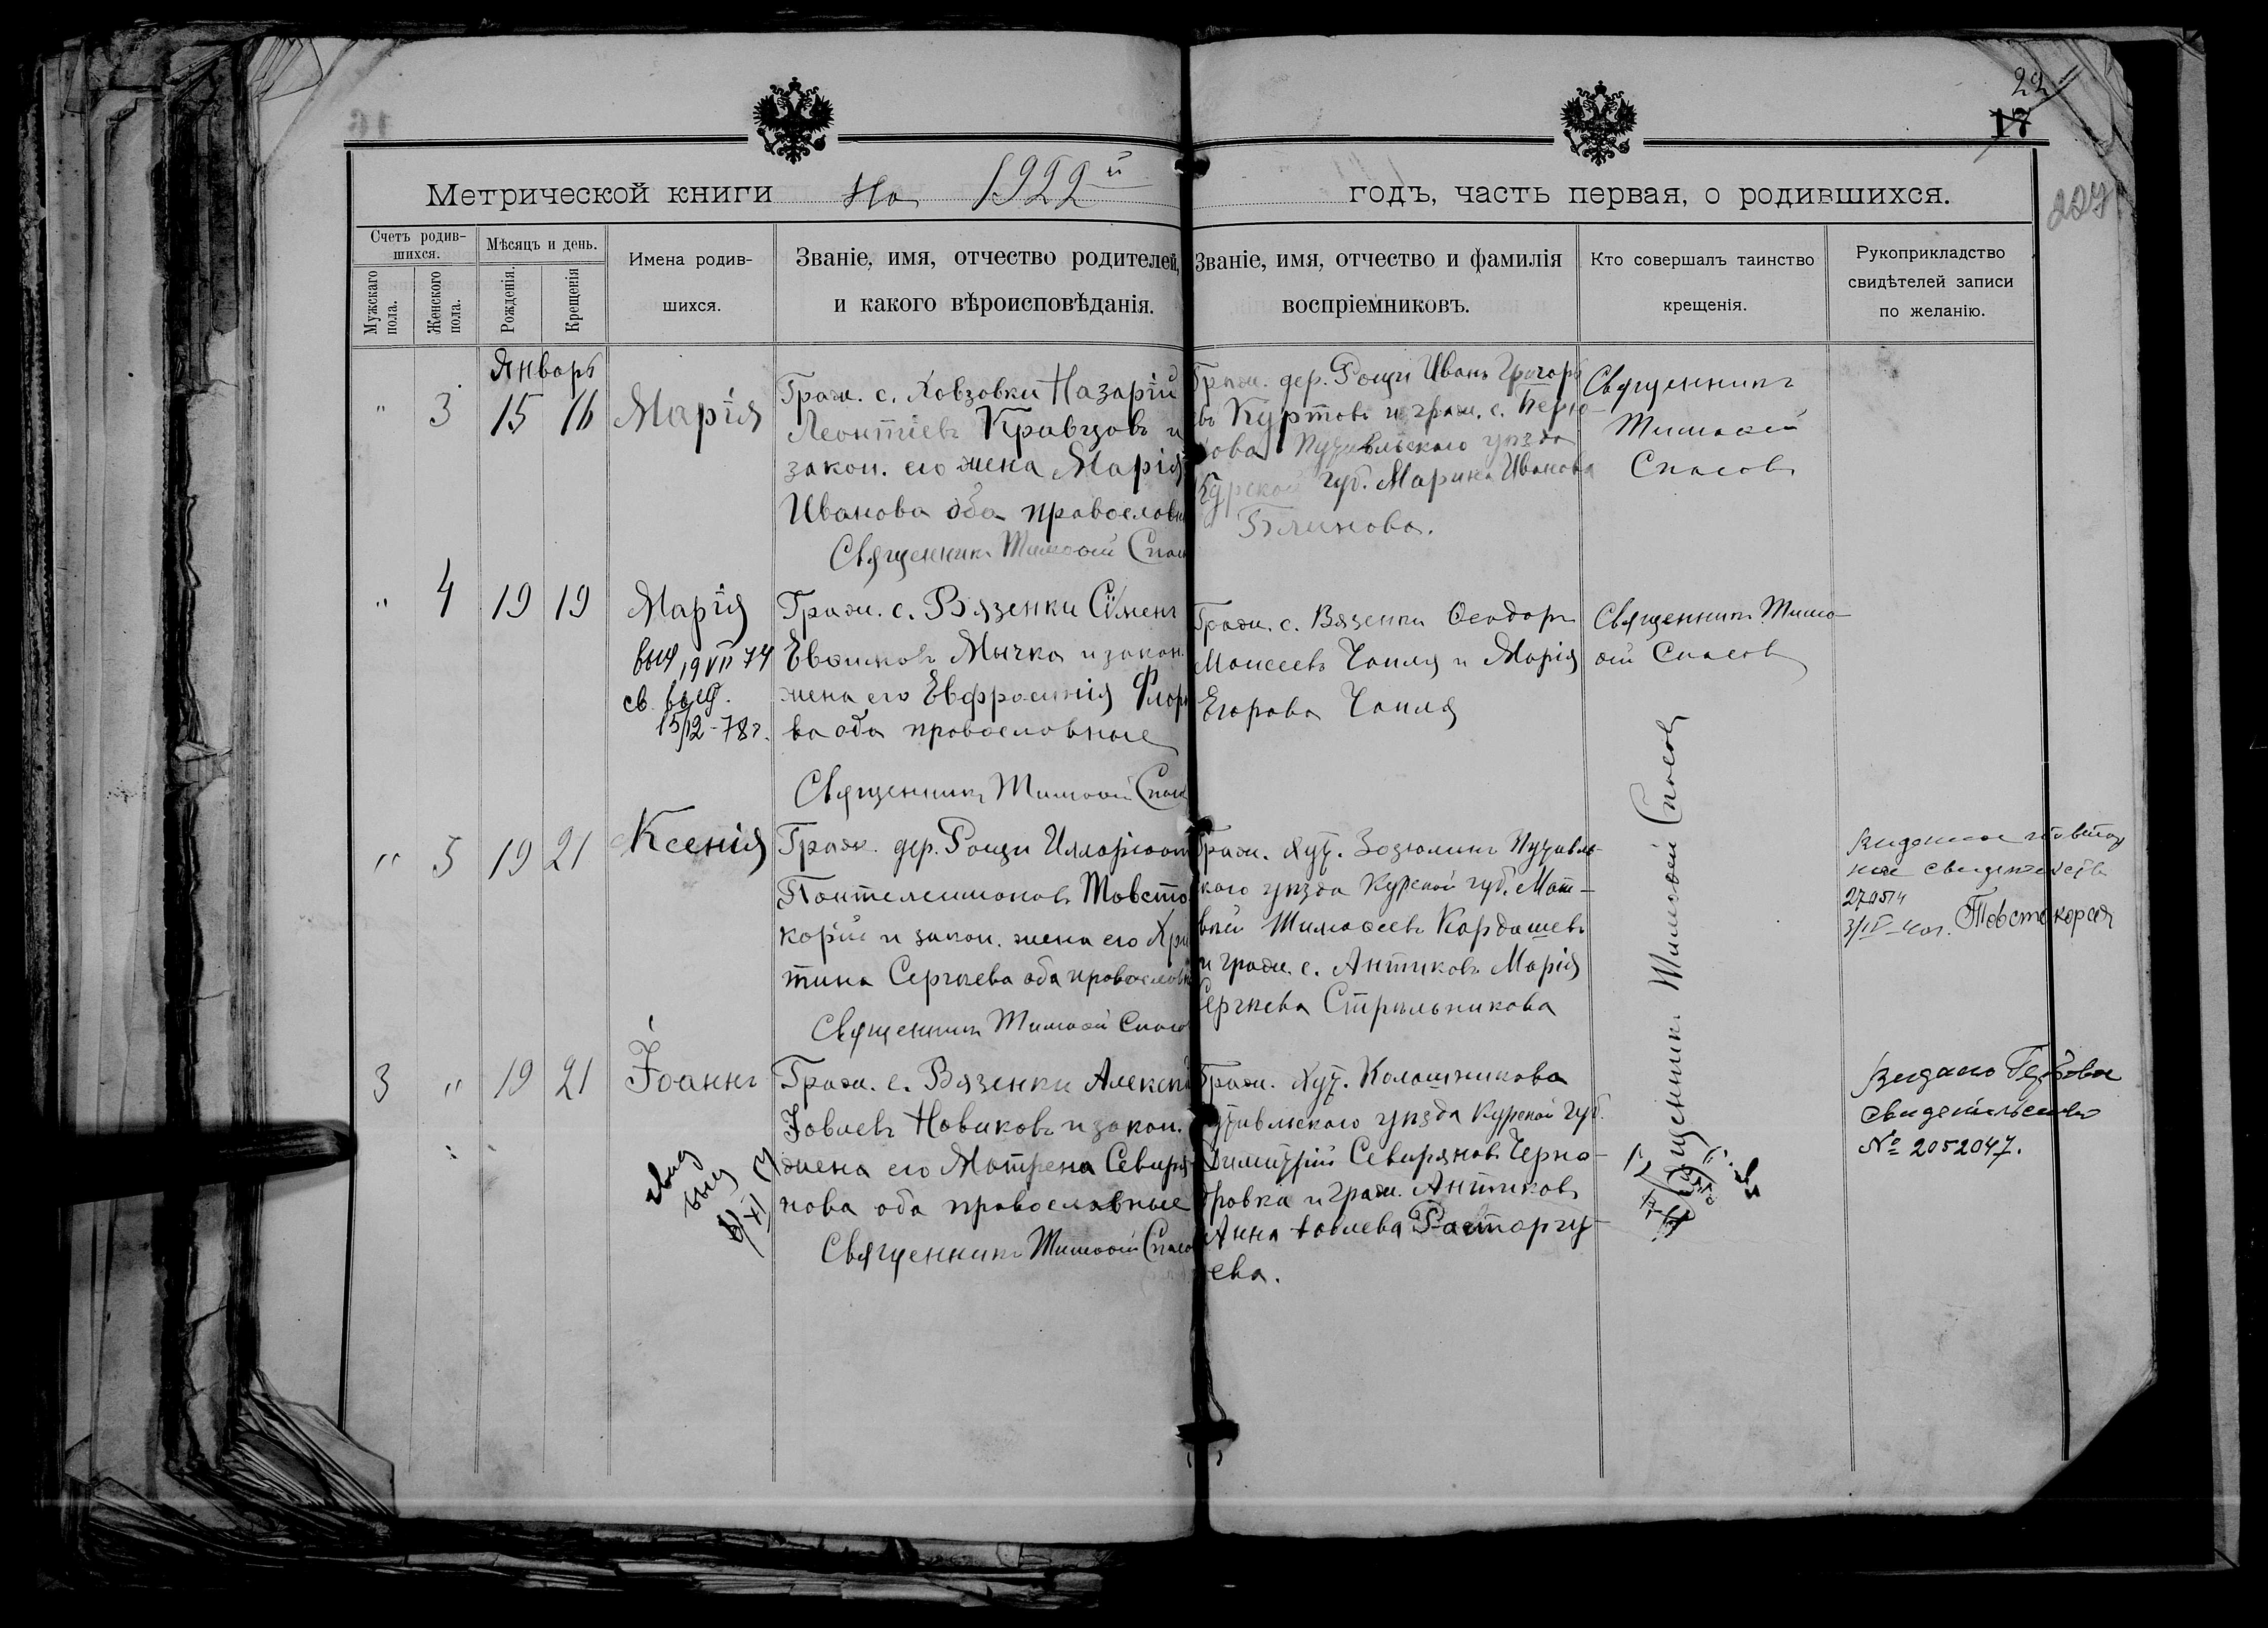 22
17
Метрической книги на 1922й годъ, часть первая, о родившихся.
Счетъ родив-
шихся.
Мужскаго
пола.
Женскаго
пола.
Мѣсяцъ и день.
Рожденія.
Крещенія
Имена родив-
шихся.
Званіе, имя, отчество родителей,
и какого вѣроисповѣданія.
Званіе, имя, отчество и фамилія
воспріемниковъ.
Кто совершалъ таинство
крещенія.
Рукоприкладство
свидѣтелей записи
по желанію.
Январь
" 3 15 16 Марія
Граж. с. Ховзовки Назарій
Леонтіевъ Кравцовъ и
закон. его жена Марія
Иванова оба православн
Священникъ Тимоѳей Спас
Граж. дер. Рощи Иванъ Григорь
въ Куртовъ и граж. с.
Путивльскаго уѣзда
Курской губ. Марина Иванова
Блинова.
Священникъ
Тимоѳей
Спасовъ
" 4 19 19 Марія
выд 19 VII 74
св. выд.
15/12-78г.
Граж. с. Вязенки Сѵменъ
Евѳимовъ Мычка и закон.
жена его Евфросинія Флор
ва оба православные
Священникъ Тимоѳей Спас
Граж. с. Вязенки Ѳеодоръ
Моисеевъ Чапля и Марія
Егорова Чапля
Священникъ Тимо-
ѳей Спасовъ
" 5 19 21 Ксенія
Граж. дер. Рощи Илларіонъ
Пантелеимоновъ Товсто
корій и закон. жена его Хри
тина Сергѣева оба православн
Священникъ Тимоѳей Спасо
Граж. хут. Зозюлинъ Путивль-
скаго уѣзда Курской губ. Мат-
вѣй Тимоѳеевъ Кардашевъ
и граж. с. Антиковъ Марія
Сергѣева Стрѣльникова
Священникъ Тимоѳей Спасовъ
270514
Товстокорая
3 " 19 21 Іоаннъ
выд
Граж. с. Вязенки Алексѣй
Іовлевъ Новиковъ и закон.
жена его Матрена Северья
нова оба православные
Священникъ Тимоѳей Спасо
Граж. хут. Калашникова
Путивльскаго уѣзда Курской губ.
Димитрій Северьяновъ Черно-
бровка и граж. Антиковъ
Анна Іовлева Расторгу-
ева.
Выдано Гербовое
свидетельство
№ 2052047.